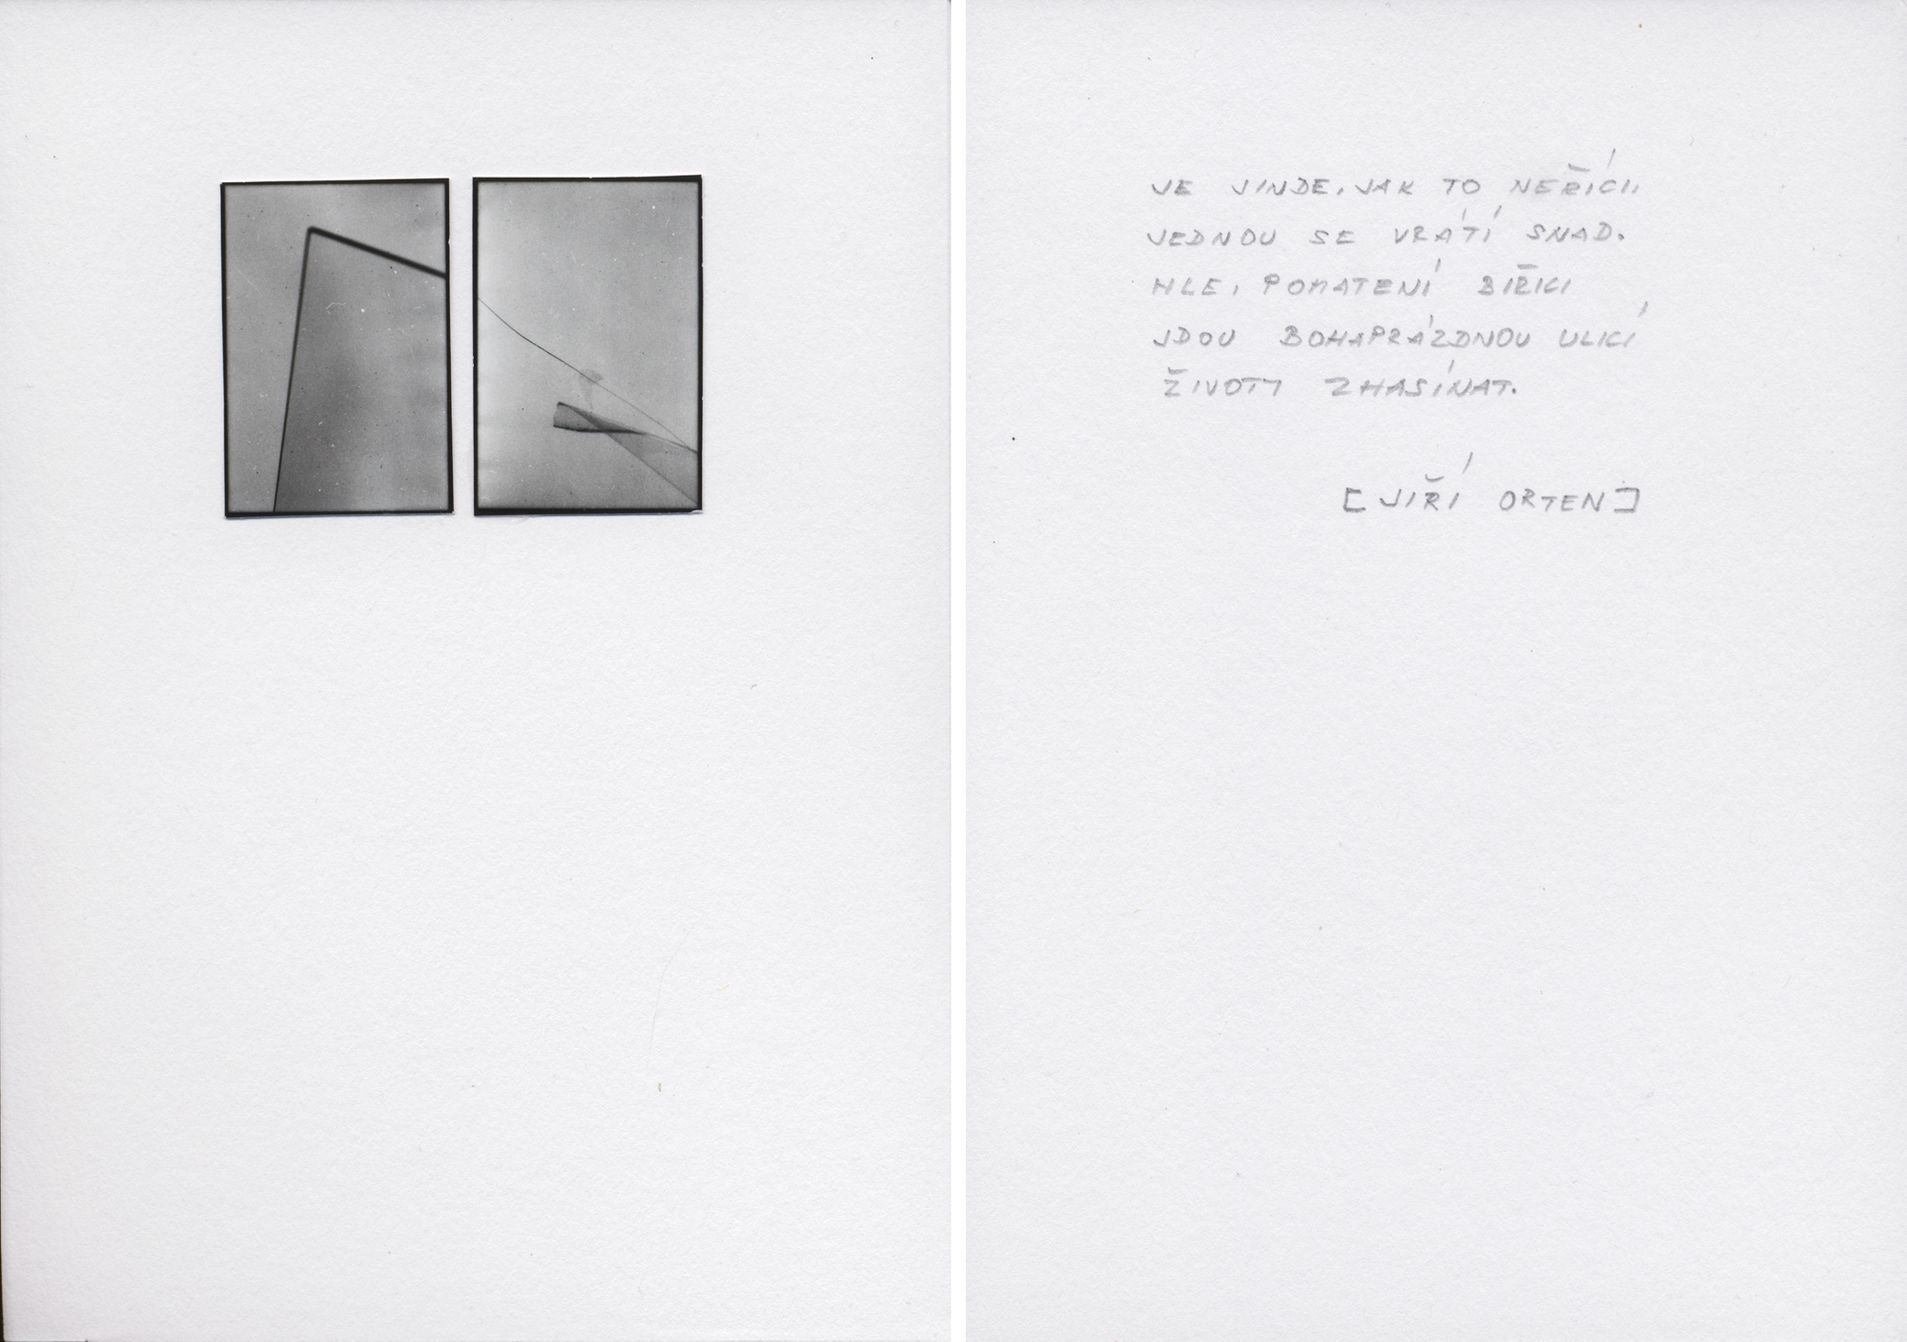 JE JINDE, JAK TO NEŘÍCI,
JEDNOU SE VRÁTÍ SNAD.
HLE, POMATENÍ BIŘICI
JDOU BOHAPRÁZDNOU ULICÍ
ŽIVOTY ZHASÍNAT.
[JIŘÍ ORTEN]